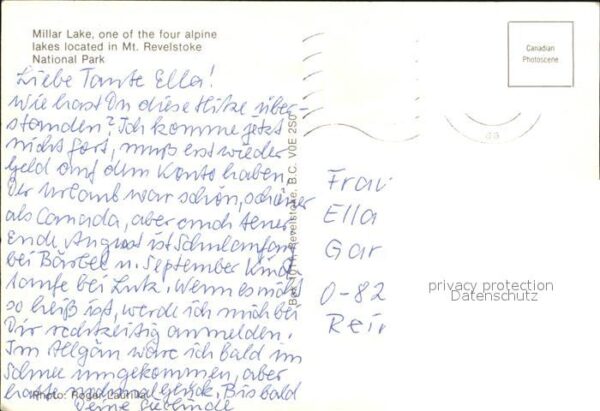 Millar Lake, one of the four alpine
lakes located in Mt. Revelstoke
National Park
Canadian
Photoscene
Liebe Tante Ella!
Wie hast Du diese Hitze über-
standen? Ich komme jetzt
nicht fort, muß erst wieder
Geld auf dem Konto haben
Der Urlaub war schön, schöner
als Canada, aber auch teuer
Ende August ist Schulanfang
bei Bärbel u. September Kind
taufe bei Lutz. Wenn es nicht
so heiß ist, werde ich mich bei
Dir rechtzeitig anmelden.
Im Allgäu wäre ich bald im
Schnee umgekommen, aber
hatte nochmal Glück. Bis bald
Deine
Photo: Roger
Revelstoke, B.C. V0E 2S0
Frau
Ella
Gar
0-82
Rein
privacy protection
Datenschutz